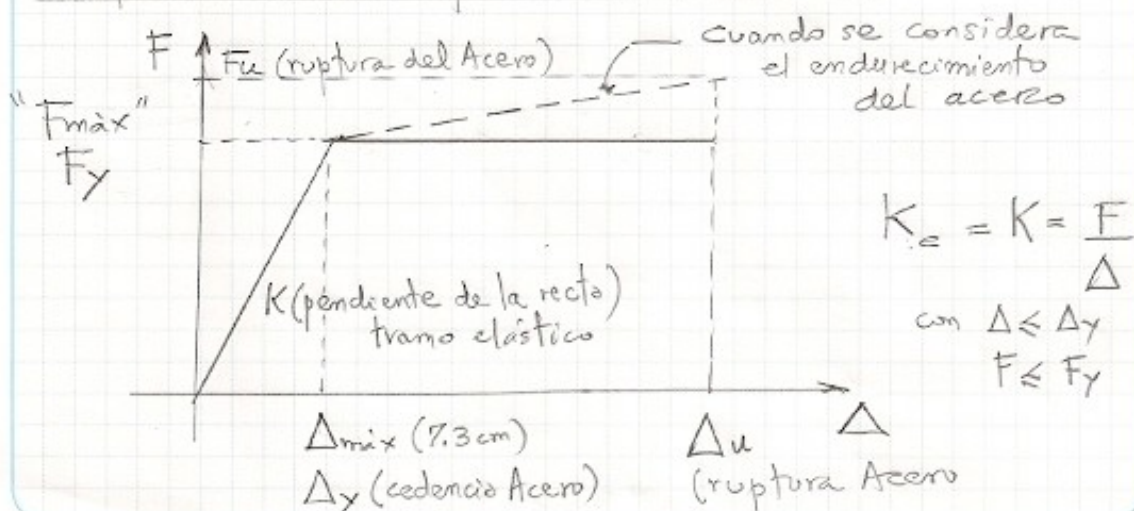 F
Fu (ruptura del Acero)
cuando se considera
el endurecimiento
del acero
"Fmáx"
Fy
K (pendiente de la recta)
tramo elástico
Ke = K = F
Δ
con Δ ≤ Δy
F ≤ Fy
Δmáx (7.3 cm)
Δy (cedencia Acero)
Δu
(ruptura Acero
Δ